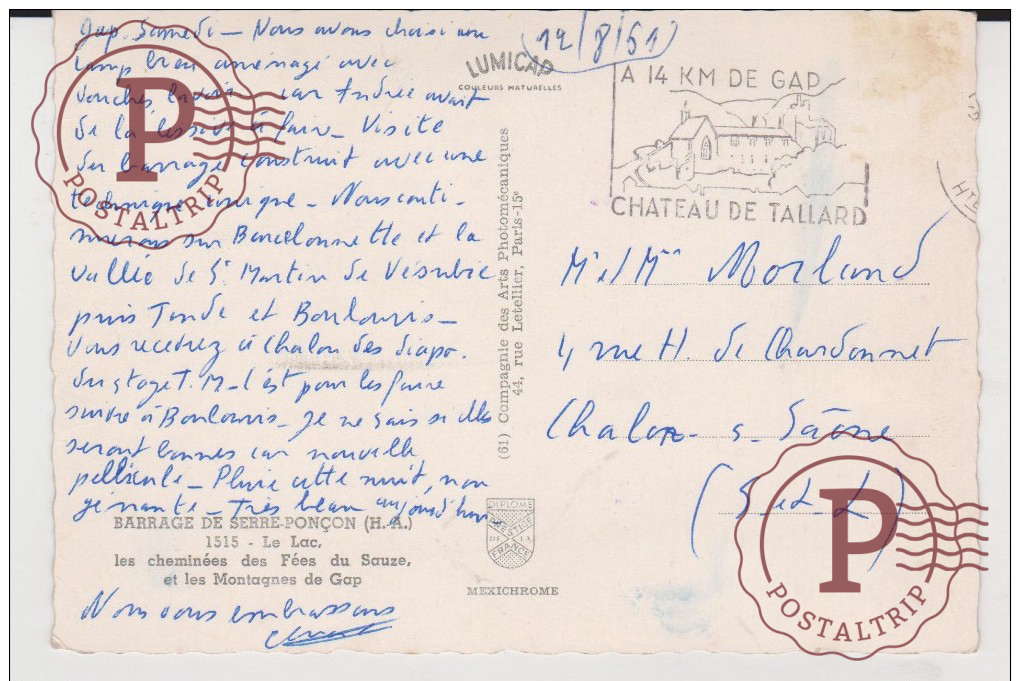 Gap, Samedi - Nous avons choisi un
camp bien aménagé avec
douches, lavoir car Andrée avait
de la lessive à faire - Visite
du barrage construit avec une
technique unique - Nous conti-
nuerons sur Barcelonnette et la
Vallée de St Martin de Vésubie
puis Tende et Boulouris -
Vous recevrez à Chalon des diapo.
du stage T.M - C'est pour les faire
suivre à Boulouris - Je ne sais si elles
seront bonnes car nouvelle
pellicule - Pluie cette nuit, non
gênante - Très beau aujourd'hui
BARRAGE DE SERRE-PONÇON (H.-A.)
1515 - Le Lac,
les cheminées des Fées du Sauze,
et les Montagnes de Gap
Nous vous embrassons
LUMICAP
COULEURS NATURELLES
(61) Compagnie des Arts Photomécaniques
44, rue Letellier, Paris-15e
DIPLOME
PRESTIGE
DE LA
FRANCE
MEXICHROME
12/8/61
A 14 KM DE GAP
CHATEAU DE TALLARD
HTES
Mr et Mme Morland
4 rue H. de Chardonnet
Chalon - s - Saône
(S. et L.)
P
POSTALTRIP
P
POSTALTRIP